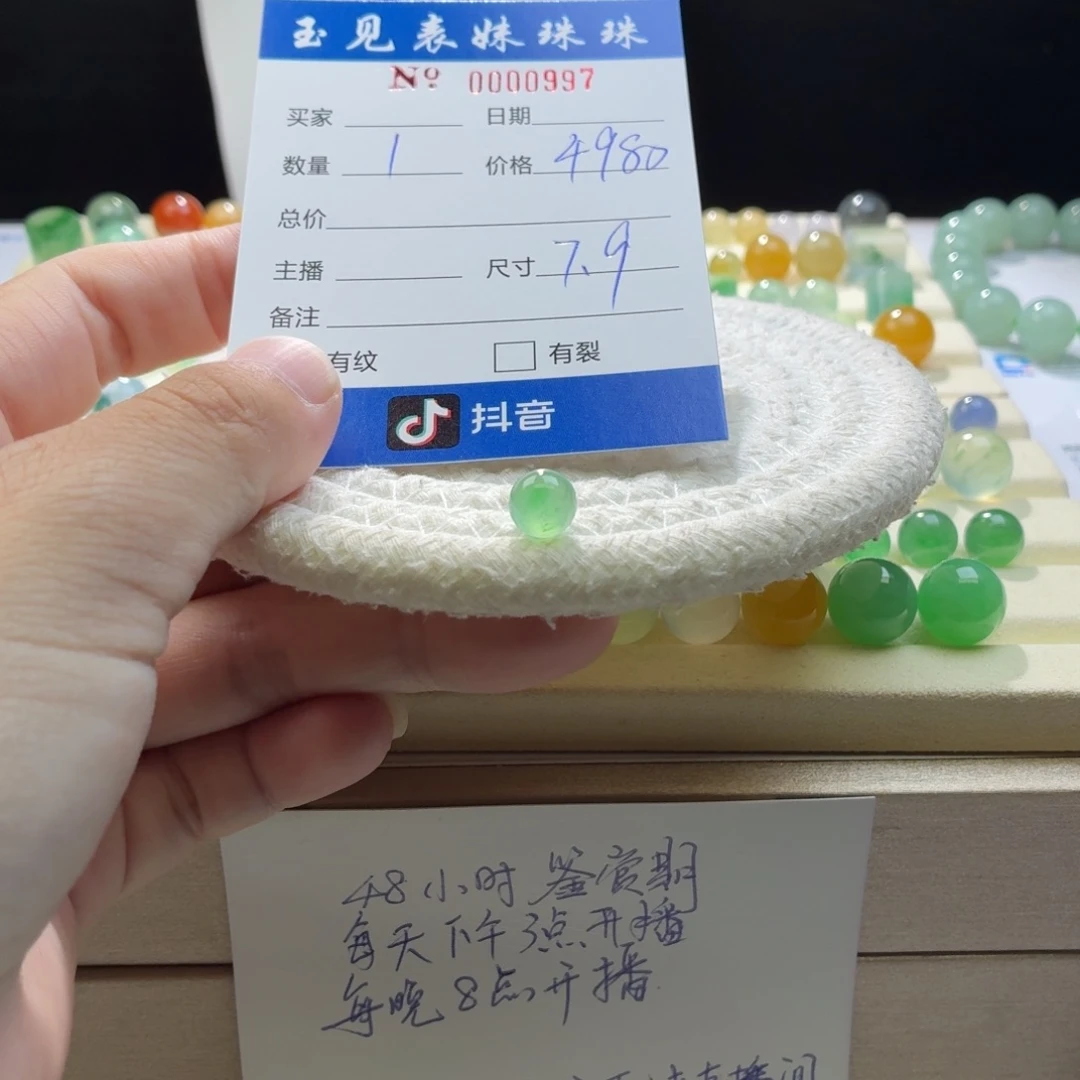 玉见表妹珠珠
Nº 0000997
买家 日期
数量 1 价格 4980
总价
主播 尺寸 7.9
备注
有纹 有裂
抖音
48小时鉴赏期
每天下午3点开播
每晚8点开播
播间